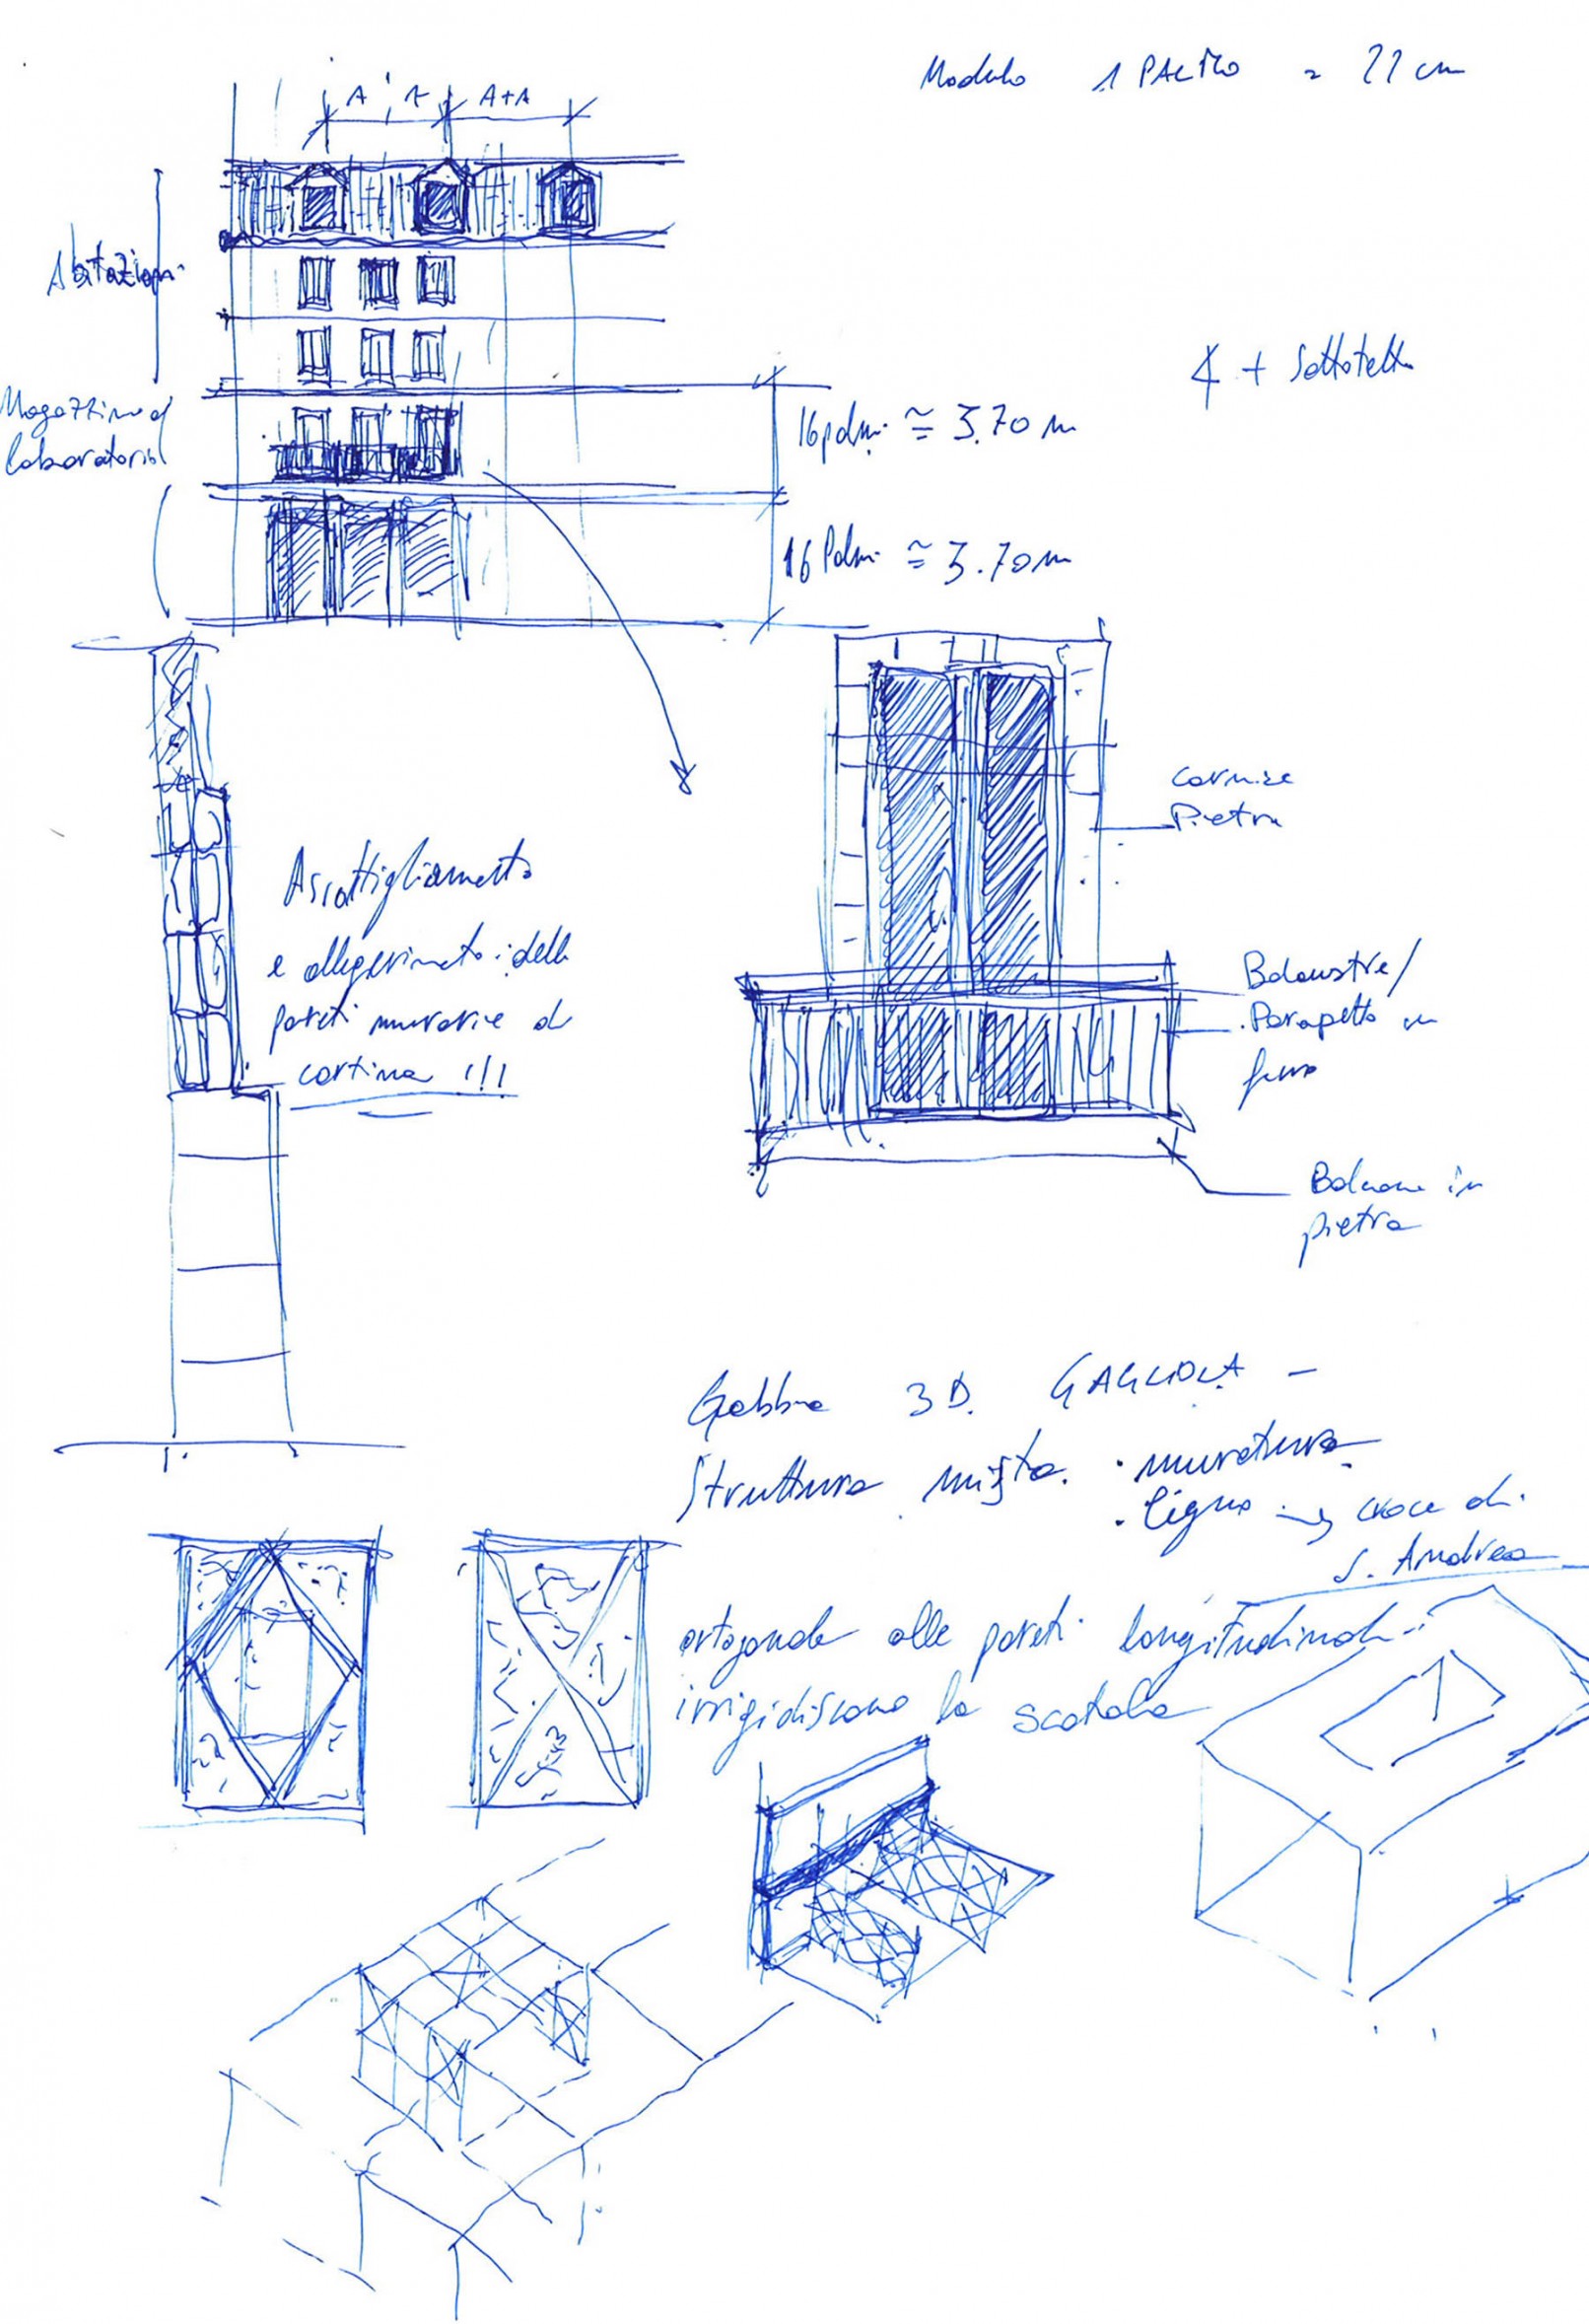 Modulo 1 PALMO = 22 cm
A A A+A
Abitazioni
4 + Sottotetto
Magazzino
laboratorio
16 palmi ≅ 3.70 m
16 Palmi ≅ 3.70 m
Cornice
Pietra
Assottigliamento
e alleggerimento delle
pareti murarie di
cortina !!!
Balaustre/
Parapetto in
ferro
Balcone in
pietra
Gabbia 3D. GAGLIOLA -
Struttura mista. · muratura
· Ligno → croce di
S. Andrea
ortogonale alle pareti longitudinali
irrigidiscono la scatola